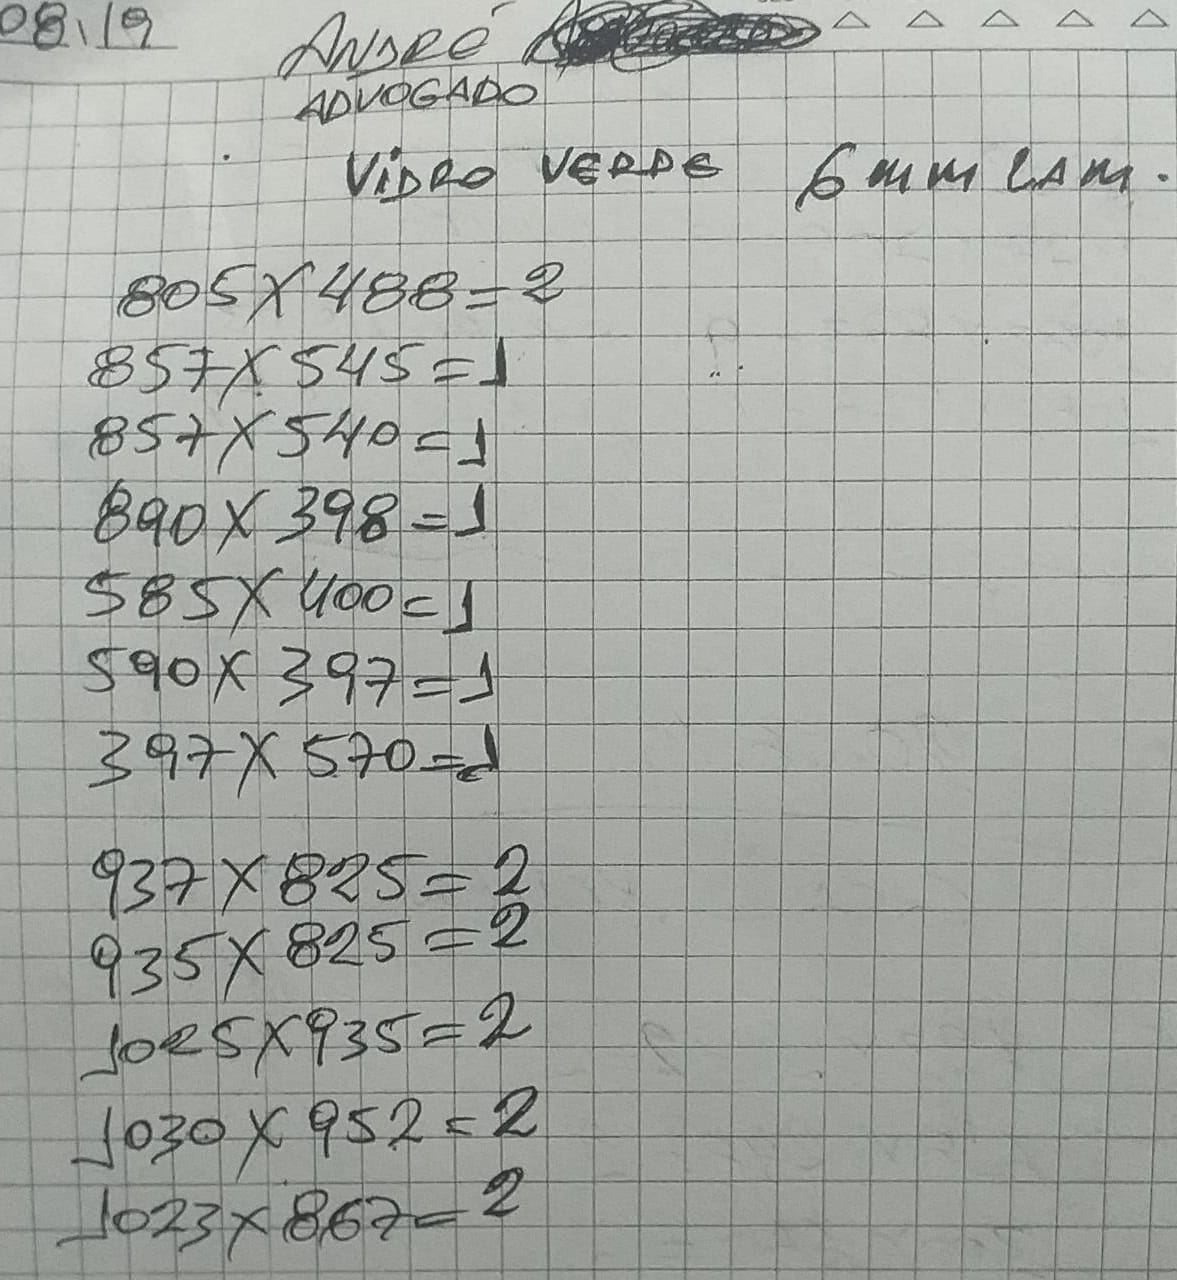 08.19
ANDRÉ
ADVOGADO
VIDRO VERDE 6mm LAM.
805X488=2
857X545=1
857X540=1
890X398=1
585X400=1
590X397=1
397X570=1
937X825=2
935X825=2
1025X935=2
1030X952=2
1023X867=2